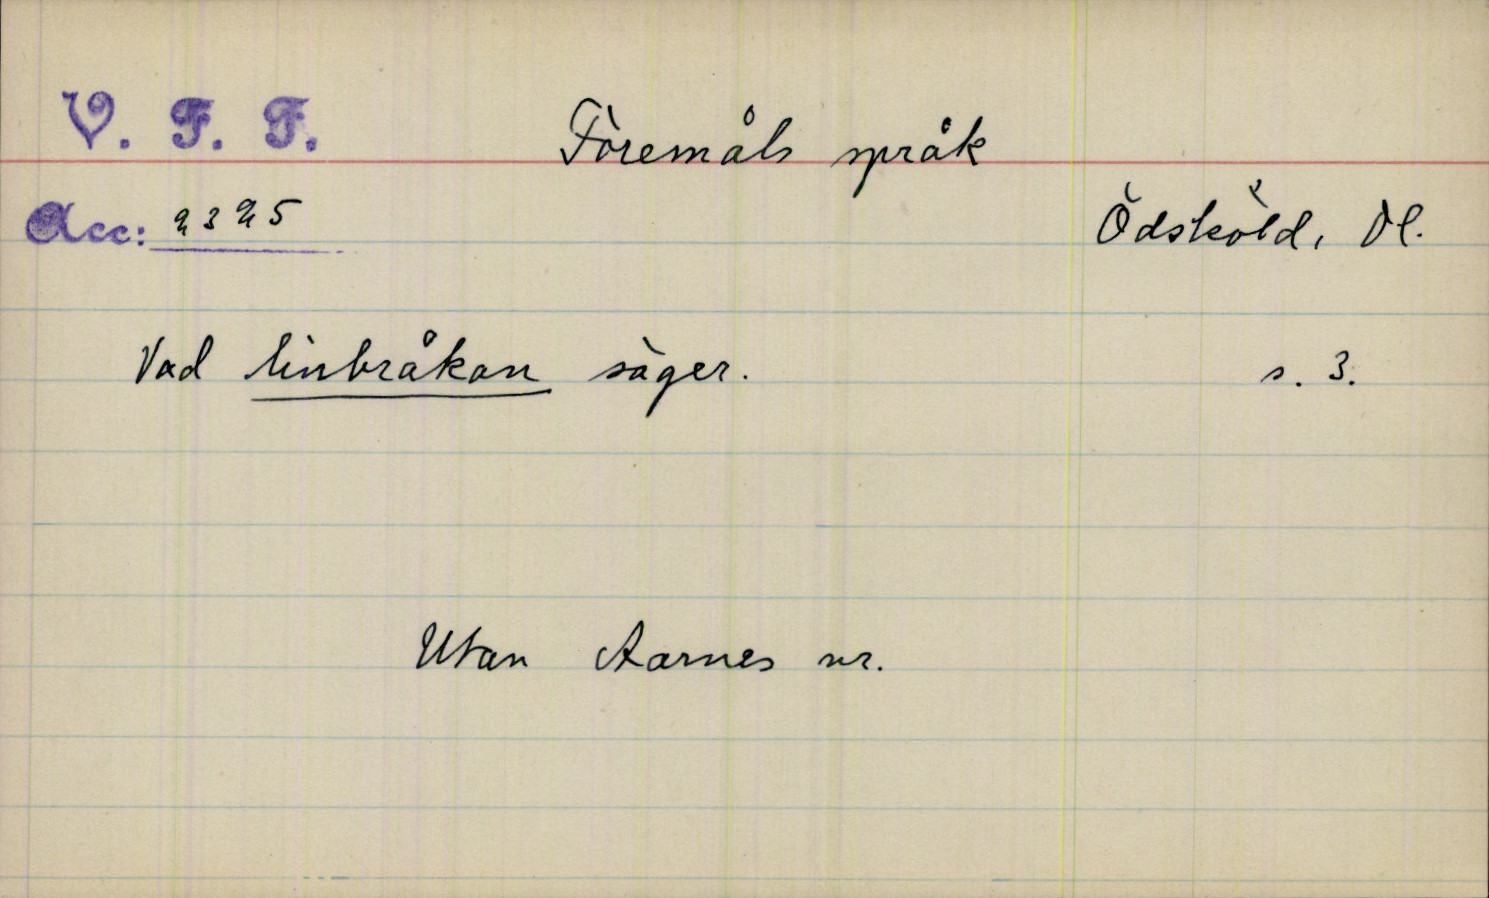 V. F. F. Föremåls språk
Acc: 2325 Ödsköld, Dl.
Vad linbråkan säger. s. 3.
Utan Aarnes nr.